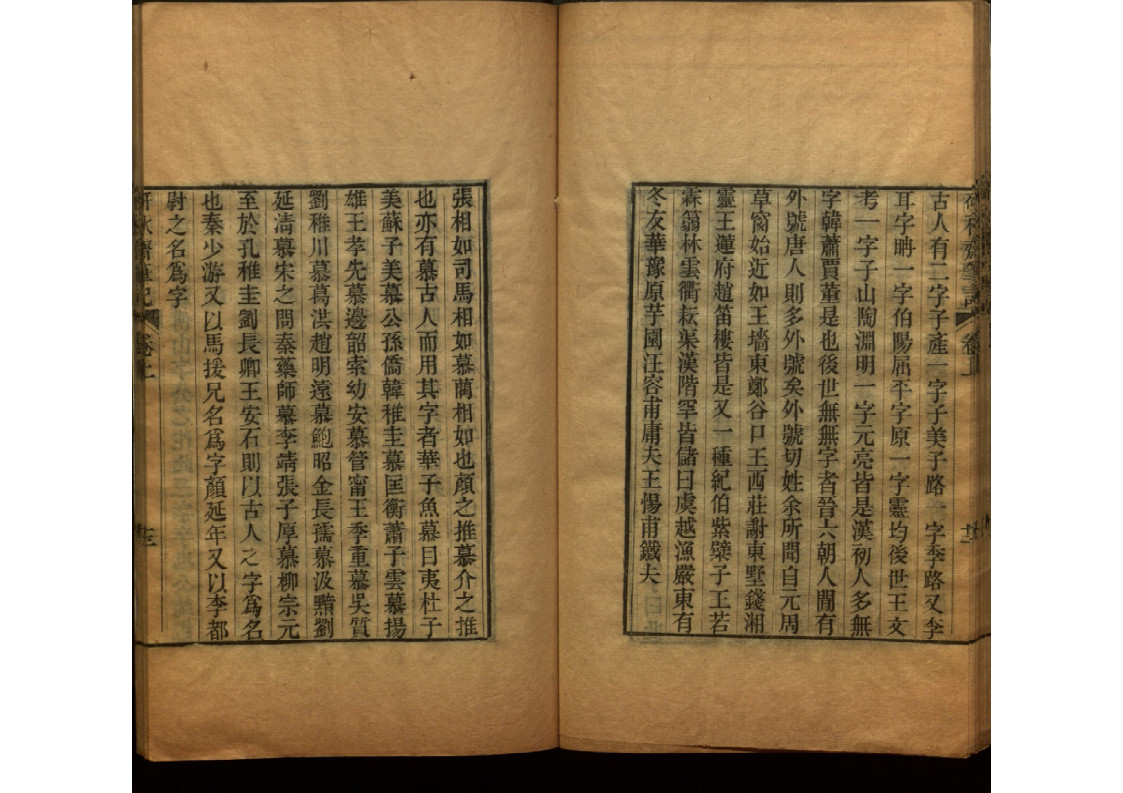 古人有二字子產一字子美子路一字季路又李
耳字聃一字伯陽屈平字原一字靈均後世王文
考一字子山陶淵明一字元亮皆是漢初人多無
字韓蕭賈董是也後世無無字者晉六朝人閒有
外號唐人則多外號矣外號切姓余所聞自元周
草窗始近如王墻東鄭谷口王西莊謝東墅錢湘
靈王蓮府趙笛樓皆是又一種紀伯紫檗子王若
霖翁林雲衢耘渠漢階罕皆儲曰虞越漁嚴東有
冬友華豫原芋園汪容甫庸夫王惕甫鐵夫
張相如司馬相如慕藺相如也顏之推慕介之推
也亦有慕古人而用其字者華子魚慕曰夷杜子
美蘇子美慕公孫僑韓稚圭慕匡衡蕭子雲慕揚
雄王孝先慕邊韶索幼安慕管甯王季重慕吳質
劉稚川慕葛洪趙明遠慕鮑昭金長孺慕汲黯劉
延淸慕宋之問秦藥師慕李靖張子厚慕柳宗元
至於孔稚圭劉長卿王安石則以古人之字爲名
也秦少游又以馬援兄名爲字顏延年又以李都
尉之名爲字
卷上